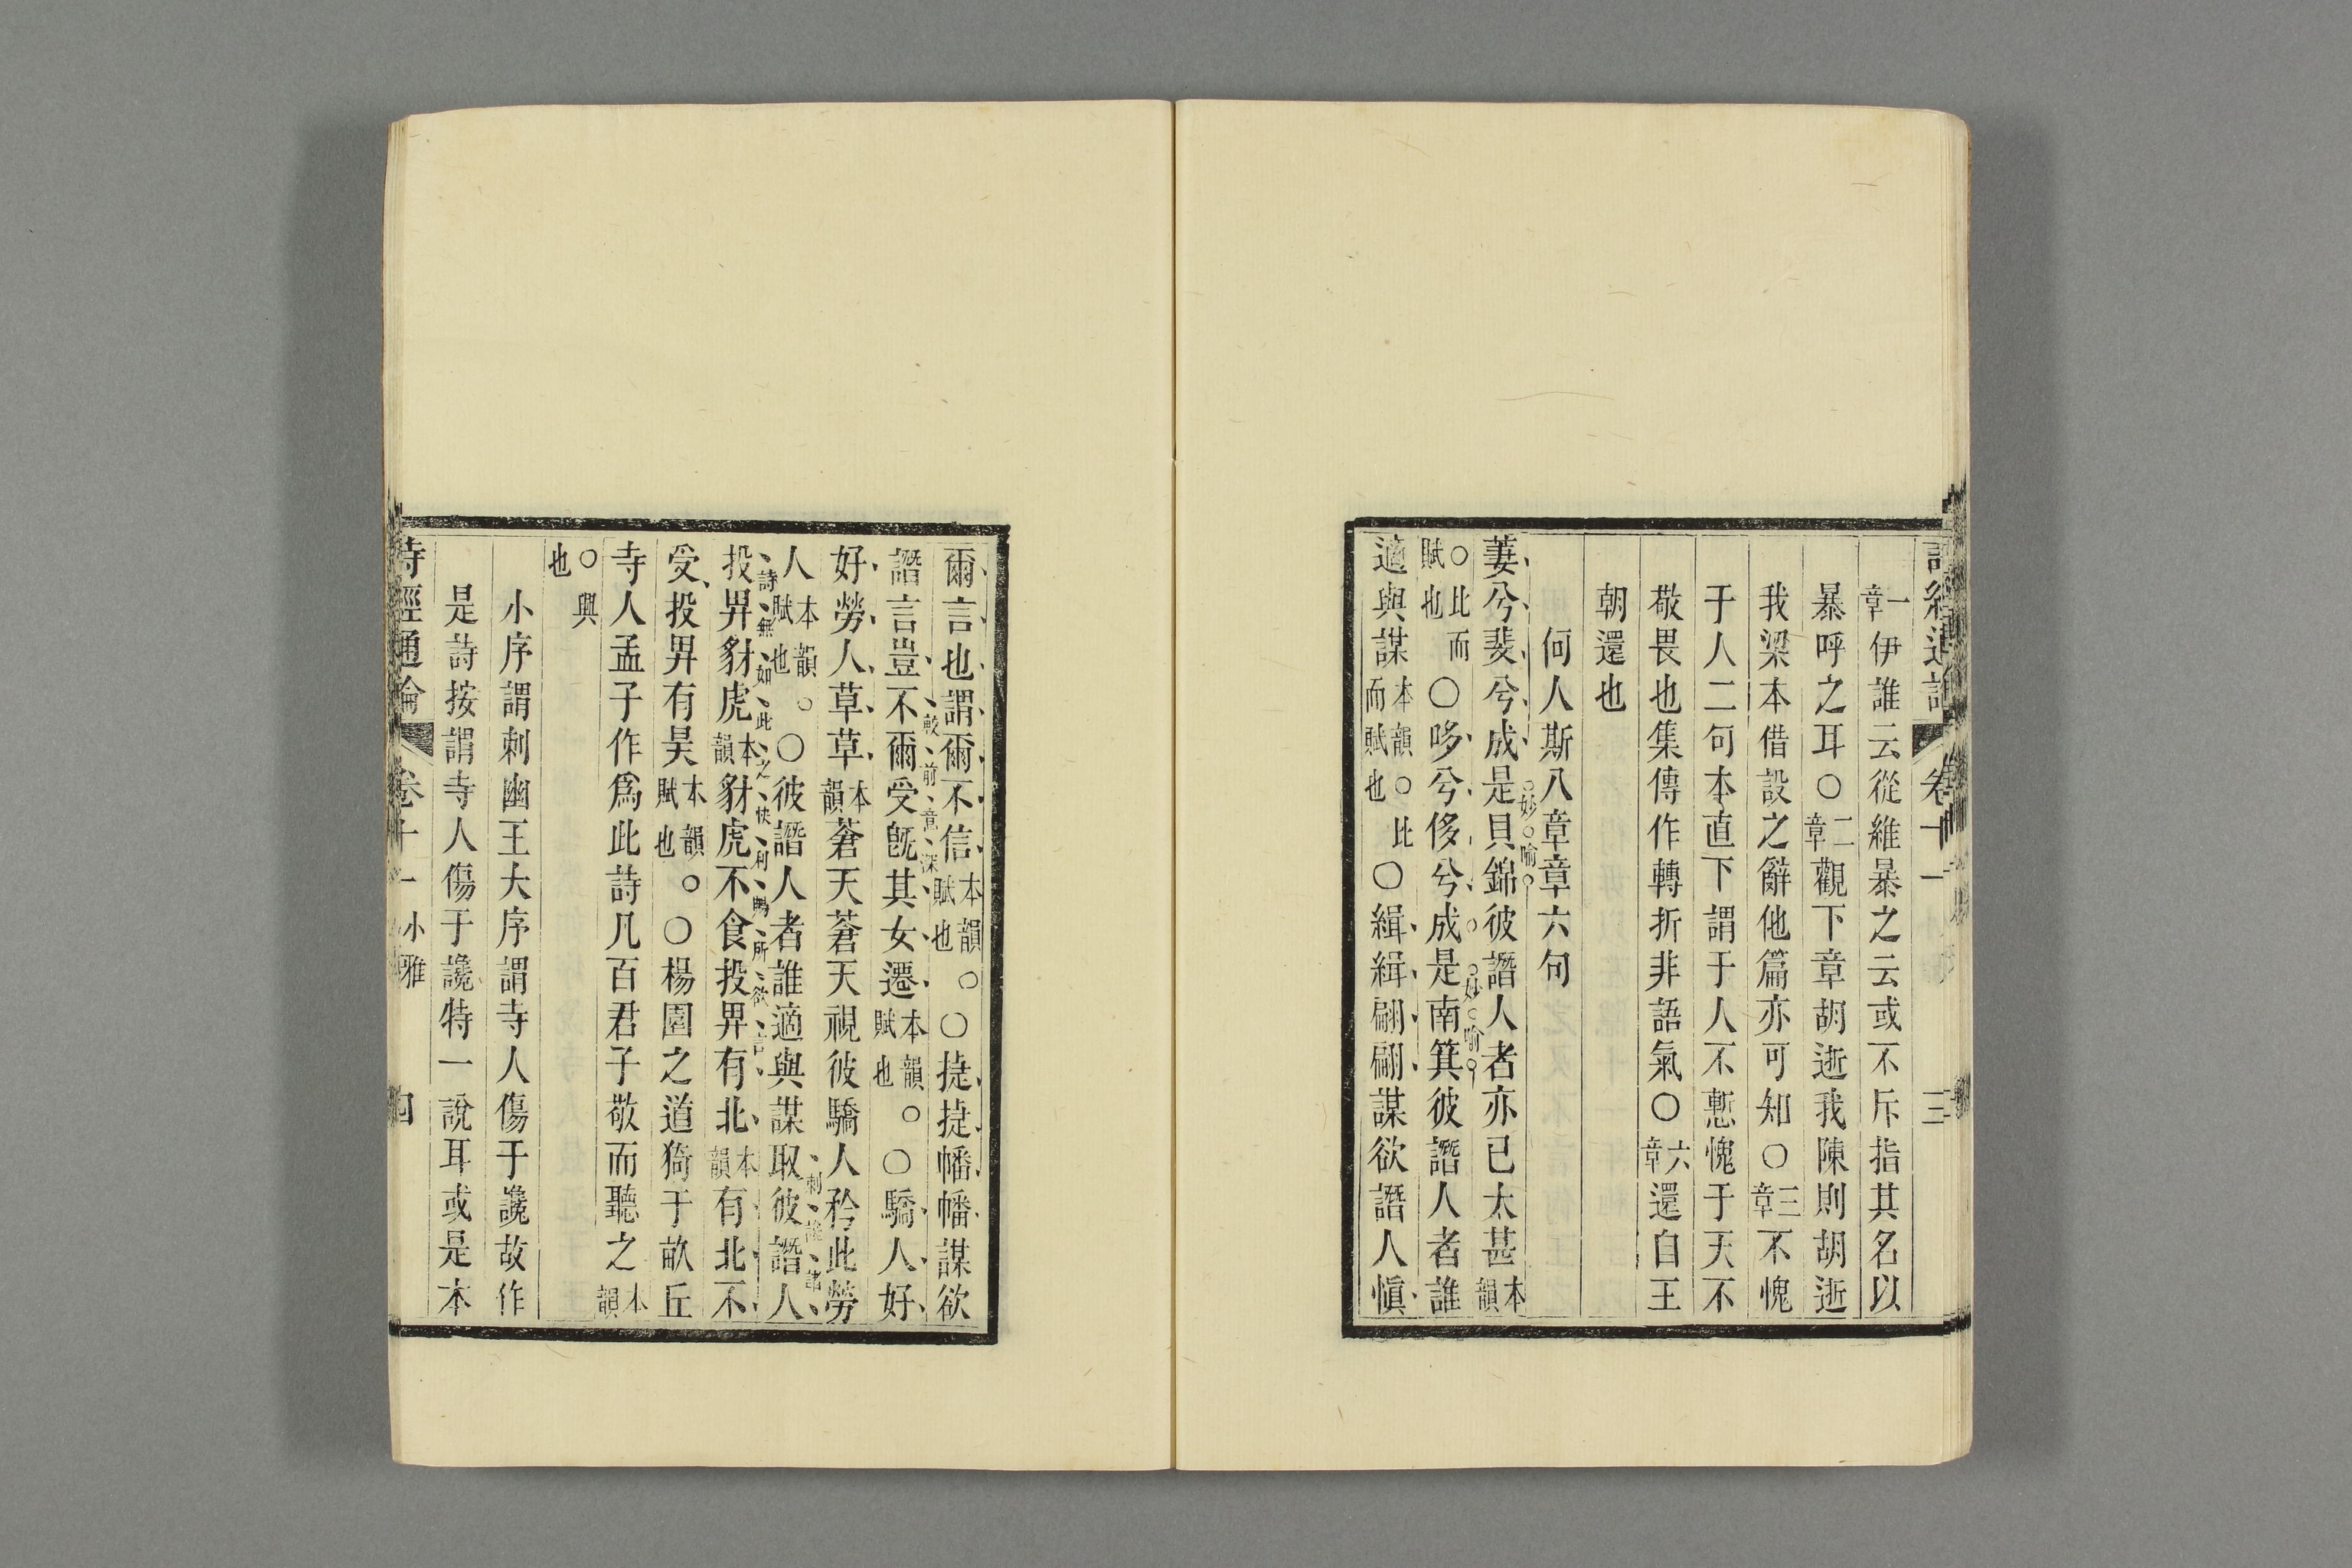 詩經通論 卷十一 三
一章伊誰云從維暴之云或不斥指其名以
暴呼之耳○二章觀下章胡逝我陳則胡逝
我梁本借設之辭他篇亦可知○三章不愧
于人二句本直下謂于人不慙愧于天不
敬畏也集傳作轉折非語氣○六章還自王
朝還也
何人斯八章章六句
萋兮斐兮成是貝錦彼譖人者亦已太甚本韻
○比而賦也○哆兮侈兮成是南箕彼譖人者誰
適與謀本韻○比而賦也○緝緝翩翩謀欲譖人愼
○妙○喻○
○妙○喻○
爾言也謂爾不信本韻○賦也○捷捷幡幡謀欲
譖言豈不爾受旣其女遷本韻○賦也○驕人好
較前意深
好勞人草草本韻蒼天蒼天視彼驕人矜此勞
人本韻○賦也○彼譖人者誰適與謀取彼譖人
投畀豺虎本韻豺虎不食投畀有北本韻有北不
詩無如此之快利暢所欲言
受投畀有昊本韻○賦也○楊園之道猗于畝丘
寺人孟子作爲此詩凡百君子敬而聽之本韻
○興也
小序謂刺幽王大序謂寺人傷于讒故作
是詩按謂寺人傷于讒特一說耳或是本
詩經通論 卷十一 小雅 四